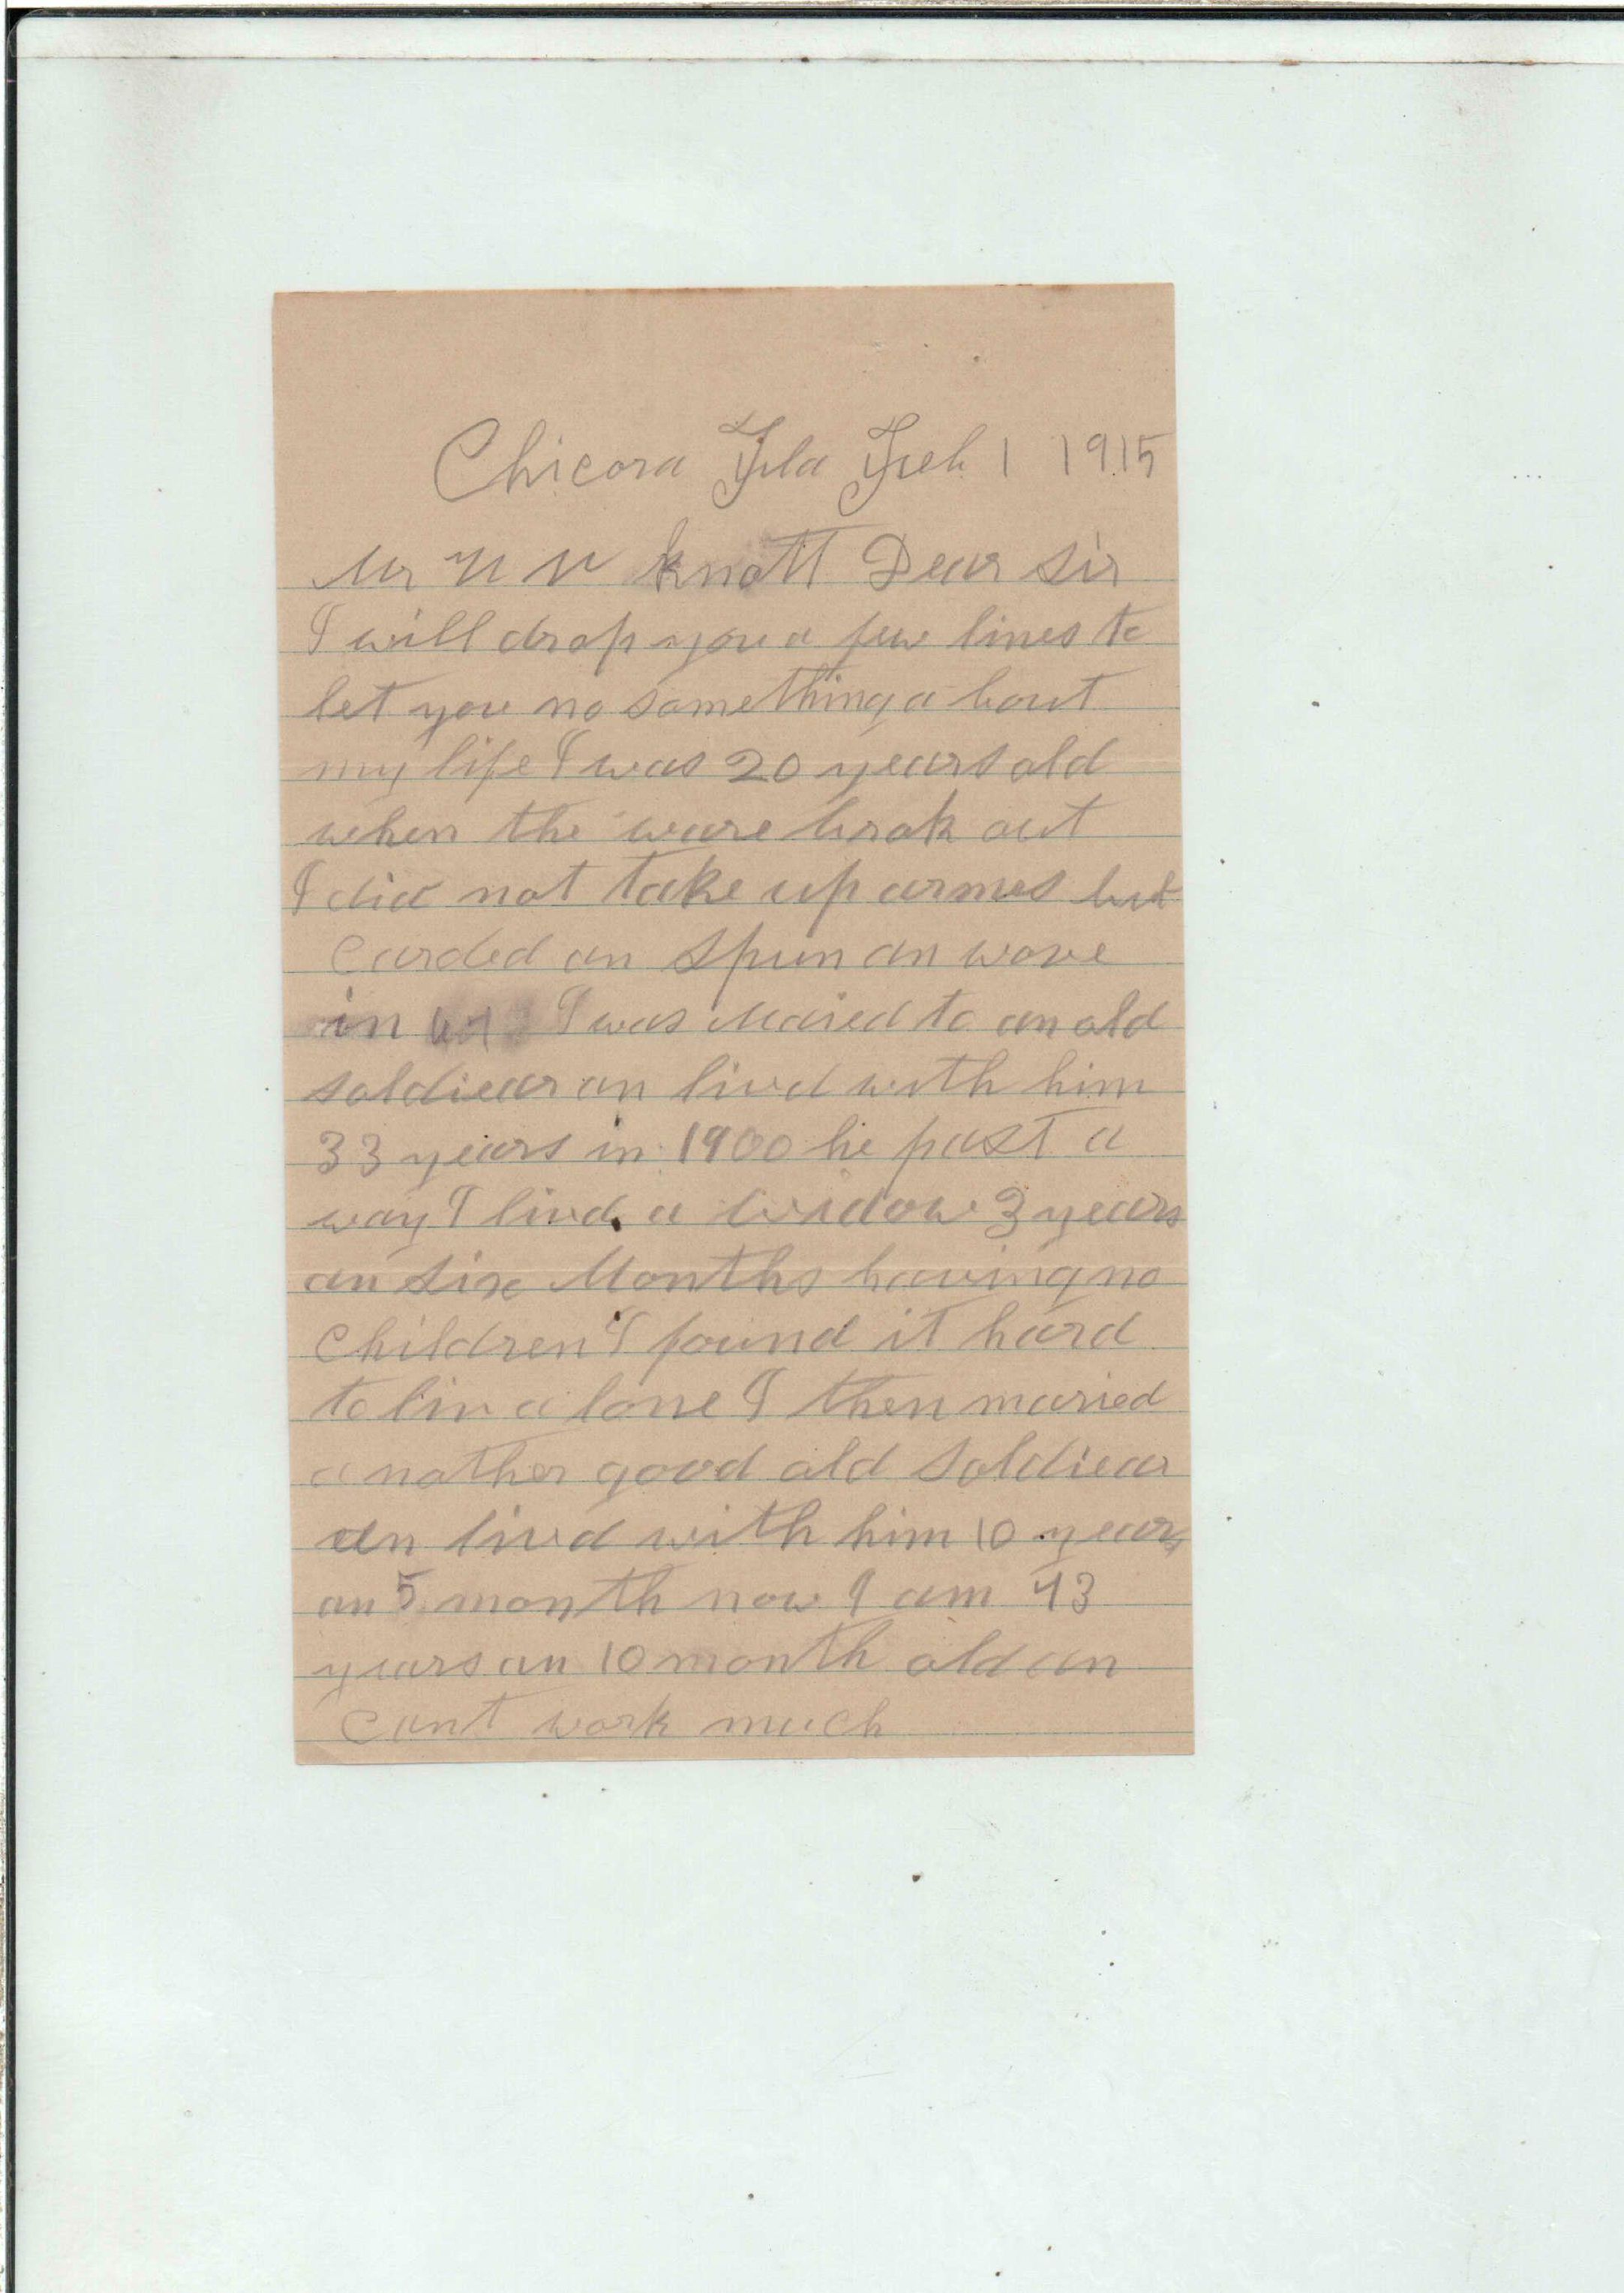 Chicora Fla Feb 1 1915
Mr Knott Dear Sir
I will drop you a few lines to
let you no something a bout
my life I was 20 years old
when the ware brok out
I did not take up armes but
carded an spun an wove
in I was Maried to an old
soldiear an livd with him
33 years in 1900 he past a
way I livd a widow 3 years
an six Months having no
children I found it hard
to liv a lone I then maried
a nother good old Soldiear
an livd with him 10 years
an 5 month now I am 73
years an 10 month old an
cant work much